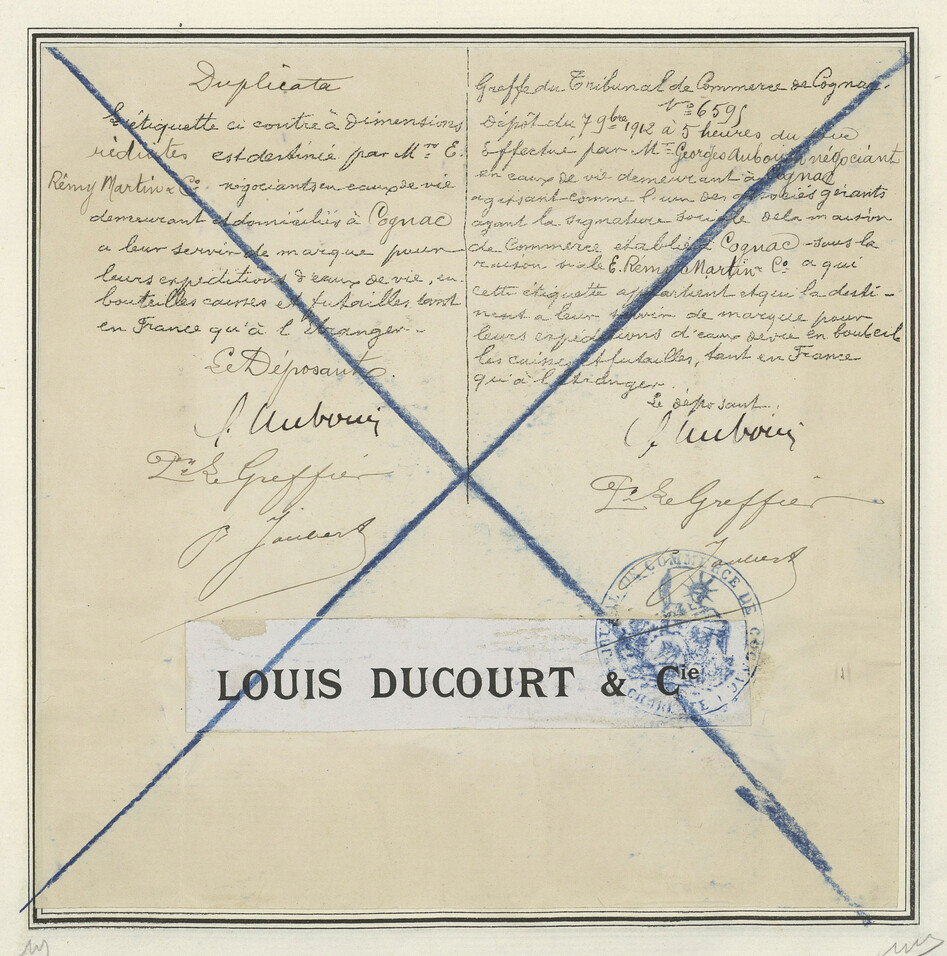 Duplicata
L'étiquette ci contre à dimensions
réduites est destinée par Mrs E.
Rémy Martin & Co négociants en eaux de vie
demeurant et domiciliés à Cognac
a leur servir de marque pour
leurs expéditions d'eaux de vie, en
bouteilles caisses et futailles tant
en France qu'à l'Etranger -
Le Déposant.
G. Aubouin
Pr Le Greffier
P Joubert
Greffe du Tribunal de Commerce de Cognac.
No 6595
Dépôt du 7 9bre 1912 à 5 heures du soir
Effectué par Mr Georges Aubouin négociant
en eaux de vie demeurant à Cognac
agissant comme l'un des associés gérants
ayant la signature sociale de la maison
de Commerce établie à Cognac sous la
raison sociale E. Rémy Martin & Co a qui
cette étiquette appartient et qui la desti-
nent a leur servir de marque pour
leurs expéditions d'eaux de vie en bouteil
les caisses et futailles, tant en France
qu'à l'étranger.
Le déposant.
G. Aubouin
Pr Le Greffier
P Joubert
COMMERCE DE COGNAC
CHARENTE
LOUIS DUCOURT & Cie